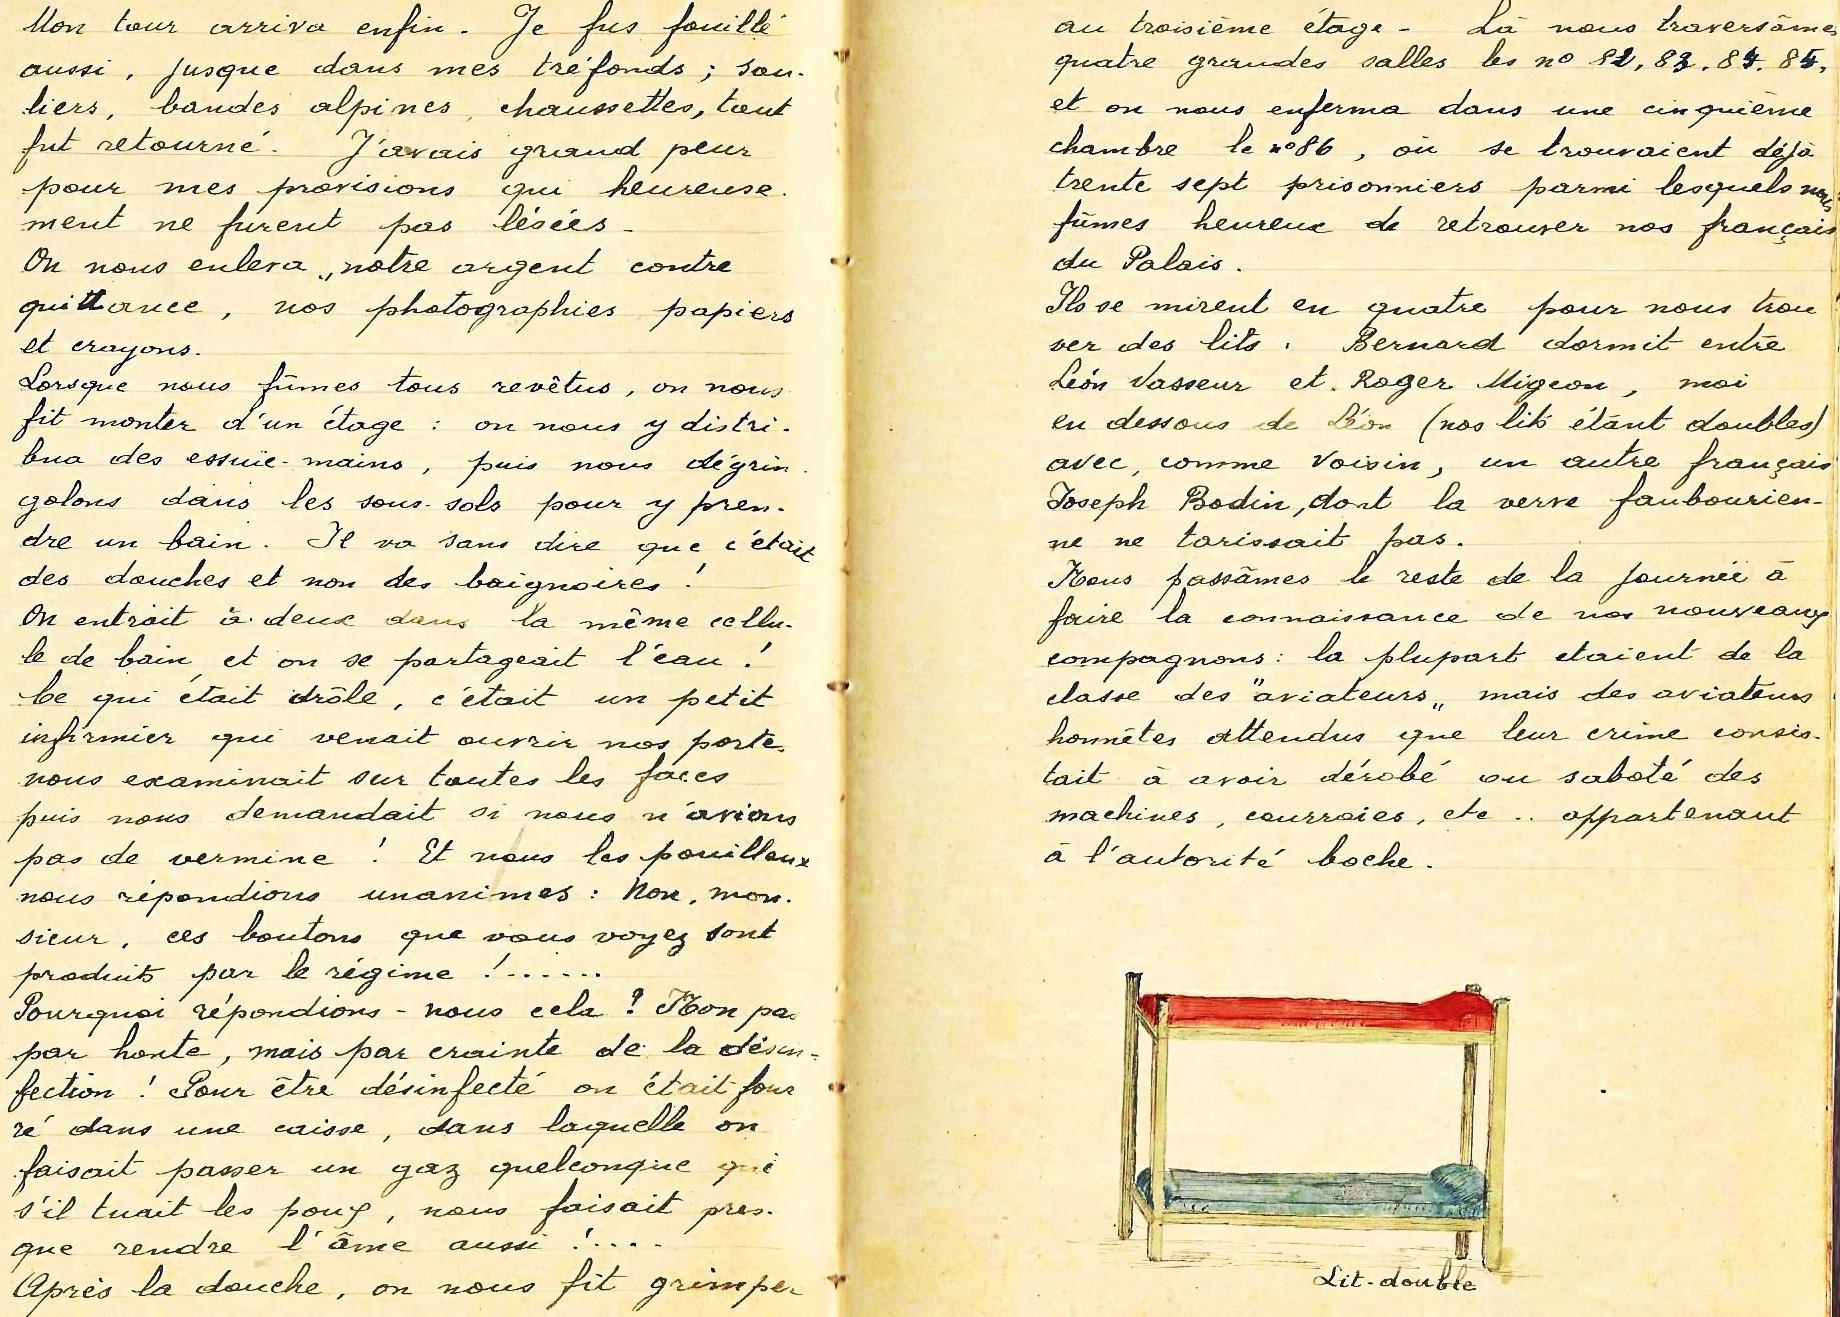 Mon tour arriva enfin. Je fus fouillé
aussi, jusque dans mes tréfonds ; sou-
liers, bandes alpines, chaussettes, tout
fut retourné. J'avais grand peur
pour mes provisions qui heureuse-
ment ne furent pas lésées -
On nous enleva „notre argent contre
quittance, nos photographies papiers
et crayons.
Lorsque nous fûmes tous revêtus, on nous
fit monter d'un étage : on nous y distri-
bua des essuie-mains, puis nous dégrin-
golons dans les sous-sols pour y pren-
dre un bain. Il va sans dire que c'était
des douches et non des baignoires !
On entrait à deux dans la même cellu-
le de bain et on se partageait l'eau !
Ce qui était drôle, c'était un petit
infirmier qui venait ouvrir nos porte,
nous examinait sur toutes les faces
puis nous demandait si nous n'avions
pas de vermine ! Et nous les pouilleux
nous répondions unanimes : Non, mon-
sieur, ces boutons que vous voyez sont
produits par le régime !......
Pourquoi répondions-nous cela ? Non pas
par honte, mais par crainte de la désin-
fection ! Pour être désinfecté on était four
ré dans une caisse, dans laquelle on
faisait passer un gaz quelconque qui
s'il tuait les poux, nous faisait pres-
que rendre l'âme aussi !....
Après la douche, on nous fit grimper
au troisième étage - Là nous traversâmes
quatre grandes salles les no 82, 83, 84, 85,
et on nous enferma dans une cinquième
chambre le n°86, où se trouvaient déjà
trente sept prisonniers parmi lesquels nous
fûmes heureux de retrouver nos français
du Palais.
Ils se mirent en quatre pour nous trou
ver des lits. Bernard dormit entre
Léon Vasseur et Roger Migeon, moi
en dessous de Léon (nos lits étant doubles)
avec, comme voisin, un autre français
Joseph Bodin, dont la verve faubourien-
ne ne tarissait pas.
Nous passâmes le reste de la journée à
faire la connaissance de nos nouveaux
compagnons : la plupart etaient de la
classe des "aviateurs„ mais des aviateurs
honnêtes attendus que leur crime consis-
tait à avoir dérobé ou saboté des
machines, courroies, etc .. appartenant
à l'autorité boche.
Lit-double